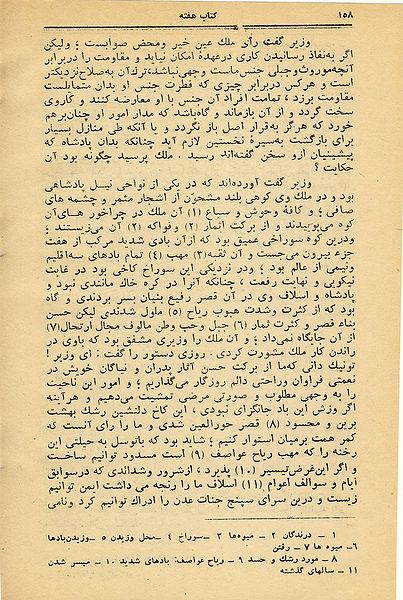 ۱۵۸ کتاب هفته
وزیر گفت رأی ملک عین خیر و محض صوابست ؛ ولیکن
اگر به‌نفاذ رسانیدن کاری درعهدهٔ امکان نیاید و مقاومت را دربرابر
آنچه‌موروث و جبلی جنس‌ماست وجهی‌نباشد، ترک‌آن به‌صلاح‌نزدیکتر
است و هرکس دربرابر چیزی که فطرت جنس او بدان متمایلست
مقاومت برزد ، تمامت افراد آن جنس با او معارضه کنند و کاروی
سخت گردد و از آن بازماند و گاه‌باشد که مدار امور او چنان‌برهم
خورد که هرگز به‌قرار اصل باز نگردد و یا آنکه طی منازل بسیار
برای بازگشت به‌سیرهٔ نخستین لازم آید چنانکه بدان پادشاه که
پیشینیان ازو سخن گفته‌اند رسید . ملک پرسید چگونه بود آن
حکایت ؟
وزیر گفت آورده‌اند که در یکی از نواحی نیل پادشاهی
بود و در ملک وی کوهی بلند مشحون از اشجار مثمر و چشمه های
صافی ؛ و کافهٔ وحوش و سباع (۱) آن ملک در چراخور های‌آن
کوه می‌بوییدند و از برکت اثمار (۲) وفواکه (۲) آن می‌زیستند ؛
ودرین کوه سوراخی عمیق بود که ازآن بادی شدید مرکب از هفت
جزء بیرون می‌جست و آن ثقبه(۳) مهب (۴) تمام بادهای سه‌اقلیم
ونیمی از عالم بود ؛ ودر نزدیکی این سوراخ کاخی بود در غایت
نیکویی و نهایت رفعت ، چنانکه آنرا در کره خاک مانندی نبود و
پادشاه و اسلاف وی در آن قصر رفیع بنیان بسر بردندی و گاه
بود که از کثرت وشدت هبوب ریاح (۵) ملول شدندی لیکن حسن
بناء قصر و کثرت ثمار (۶) جبل وحب وطن مالوف مجال ارتحال(۷)
از آن جایگاه نمی‌داد ؛ و آن ملک را وزیری مشفق بود که باوی در
راندن کار ملک مشورت کردی . روزی دستور را گفت : ای وزیر !
تونیک دانی که‌ما از برکت حسن آثار پدران و نیاگان خویش در
نعمتی فراوان وراحتی دائم روزگار می‌گذاریم ؛ و امور این ناحیت
را به وجهی مطلوب و صورتی مرضی تمشیت می‌دهیم و هرآینه
اگر وزش این باد جانگزای نبودی ، این کاخ دلنشین رشک بهشت
برین و محسود (۸) قصر حورالعین شدی و ما را رای آنست که
کمر همت برمیان استوار کنیم ؛ شاید بود که باتوسل به حیلتی این
رخنه را که مهب ریاح عواصف (۹) است مسدود توانیم ساخت
و اگر این‌غرض‌تیسیر (۱۰) پذیرد ، ازشرور وشدائدی که درسوابق
ایام و سوالف اعوام (۱۱) اسلاف ما را رنجه می‌داشت ایمن توانیم
زیست و درین سرای سپنج جنات عدن را ادراک توانیم کرد ونامی
۱ – درندگان ۲ – میوه‌ها ۳ – سوراخ ۴ – محل وزیدن ۵ – وزیدن‌بادها
۶– میوه ها ۷ – رفتن
۸ – مورد رشک و حسد ۹ – ریاح عواصف: بادهای شدید ۱۰ – میسر شدن
۱۱ – سالهای گذشته